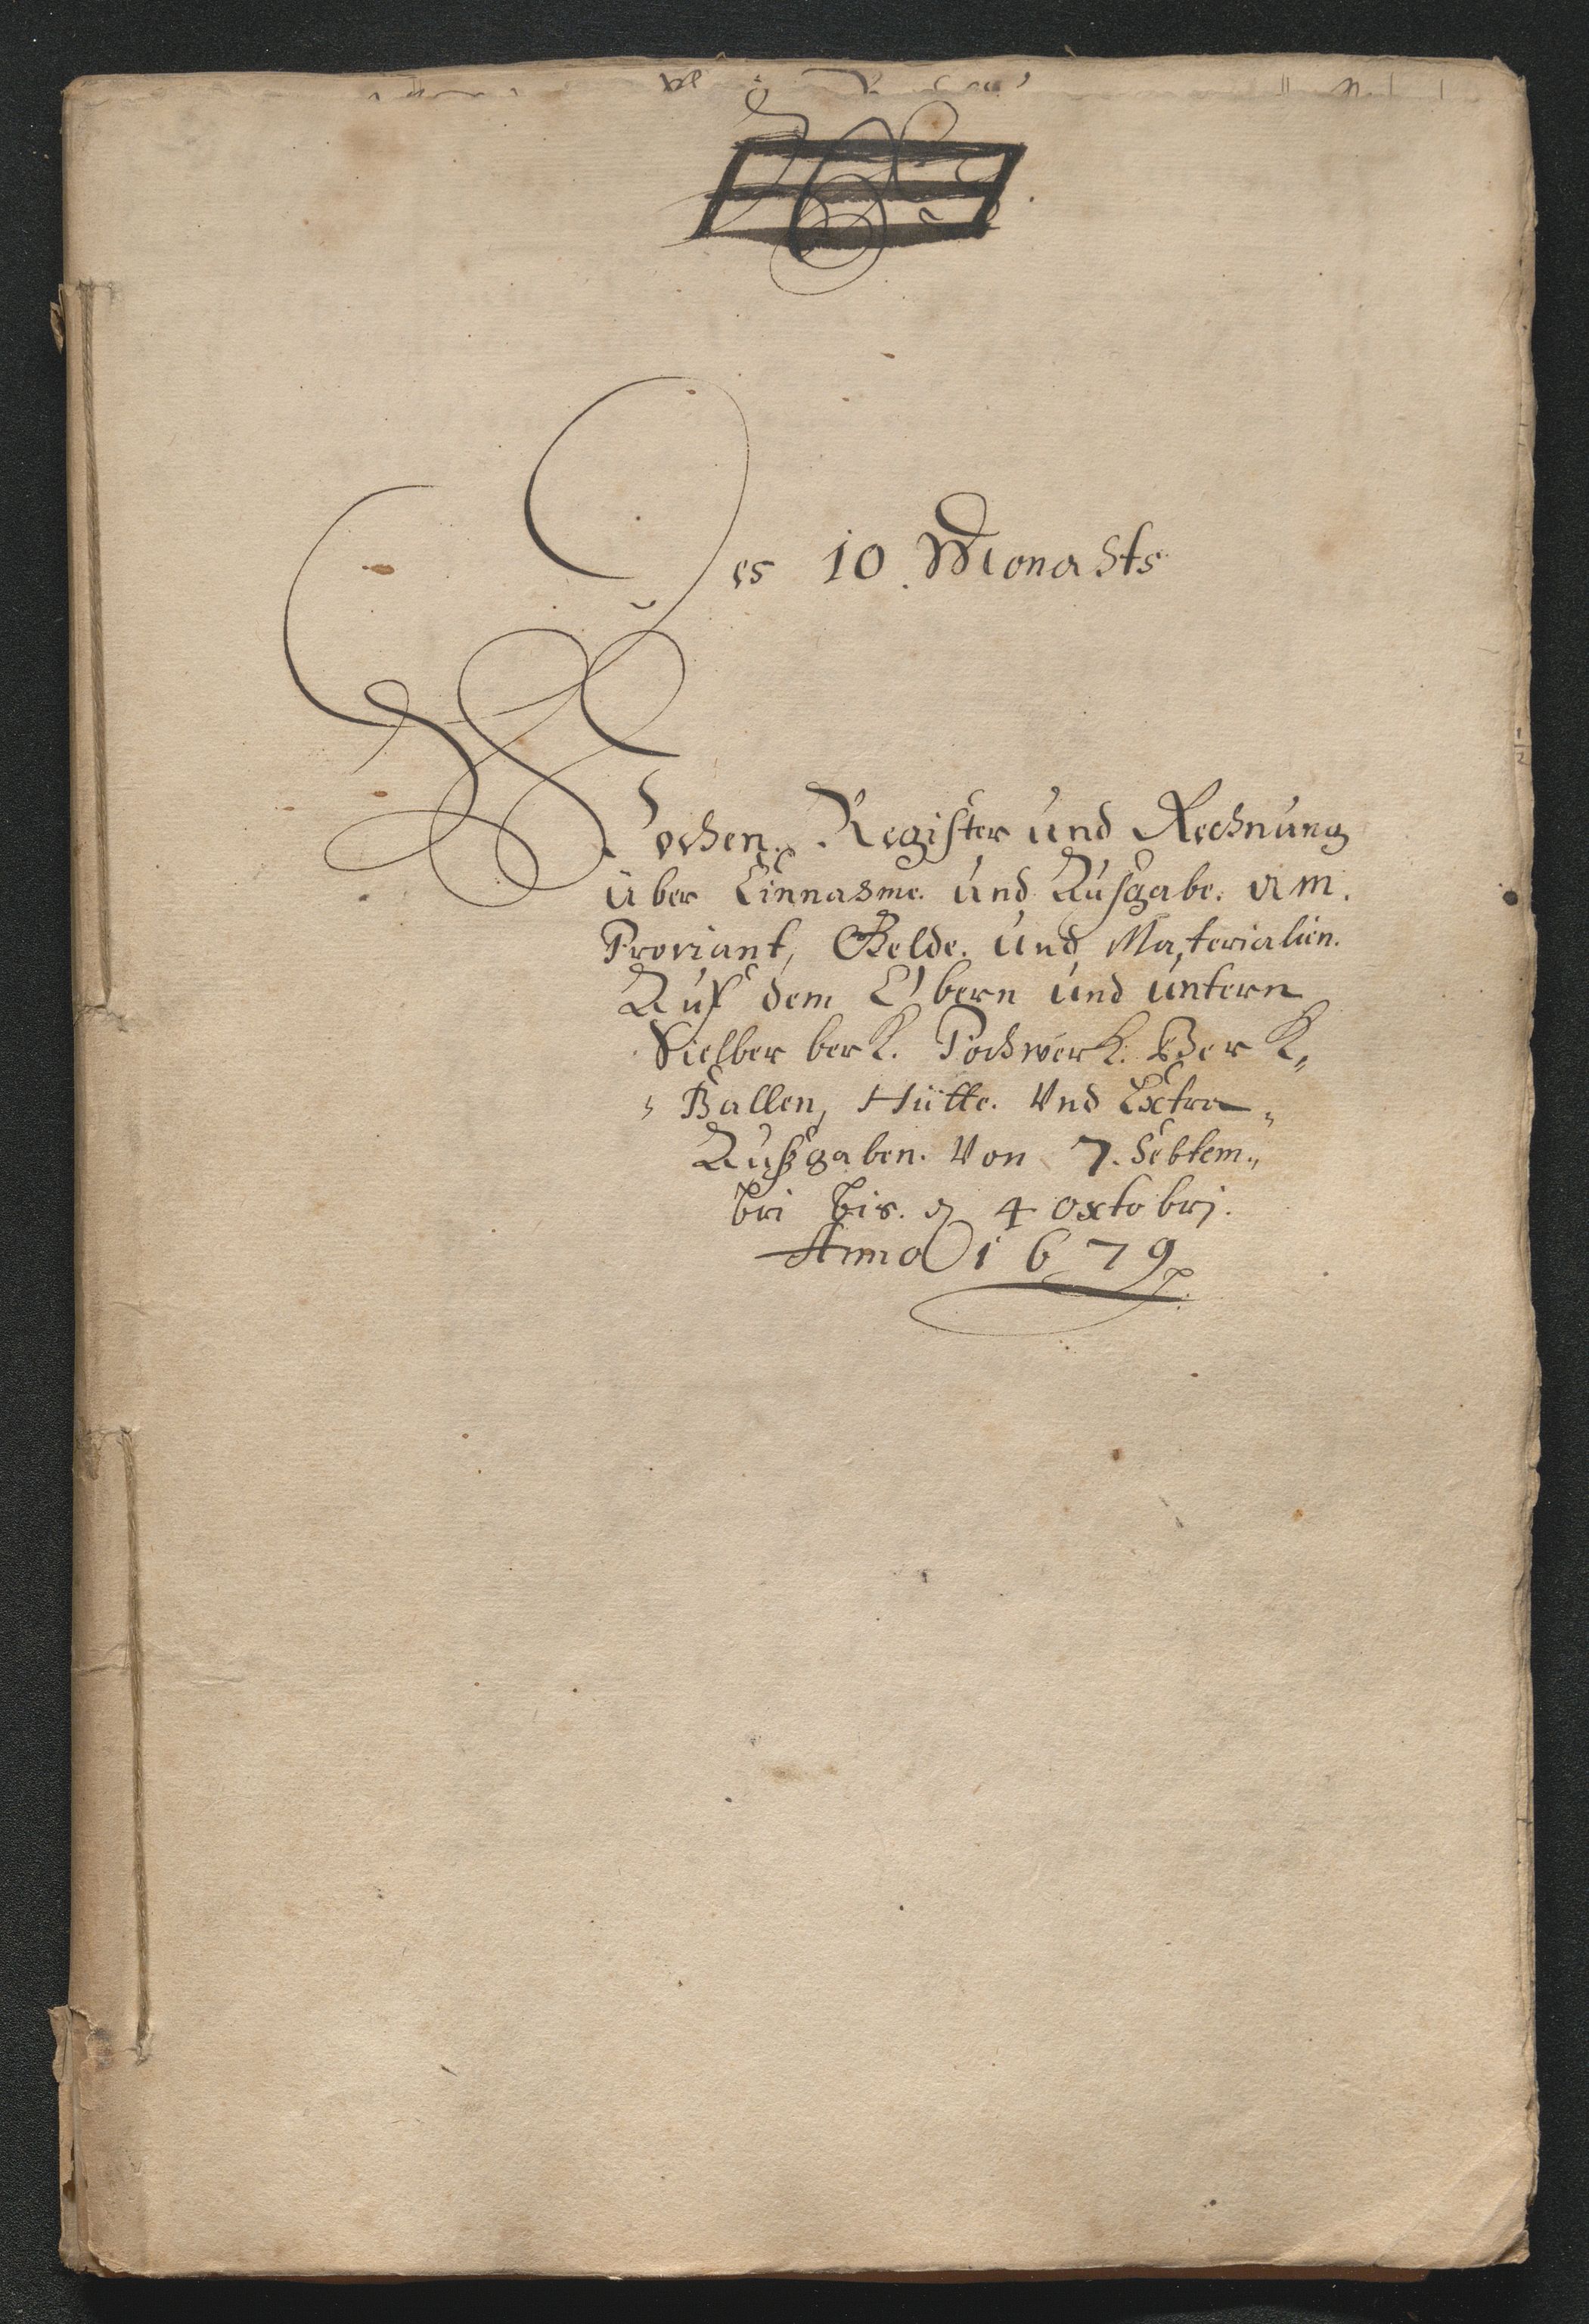 Des 10 Monahts
Wochen. Register und Rechnung
über Einnahme. und Ausgabe. am.
Proviant, Gelde. und Materialien.
Auf dem Obern und untern
Sielber berk. Pochwerk. Berk,,
,, Ballen, Hütte. Vnd Extra,,
Außgaben. Von 7. Sebtem,,
bri bis. d 4 octobrj.
Anno 1679